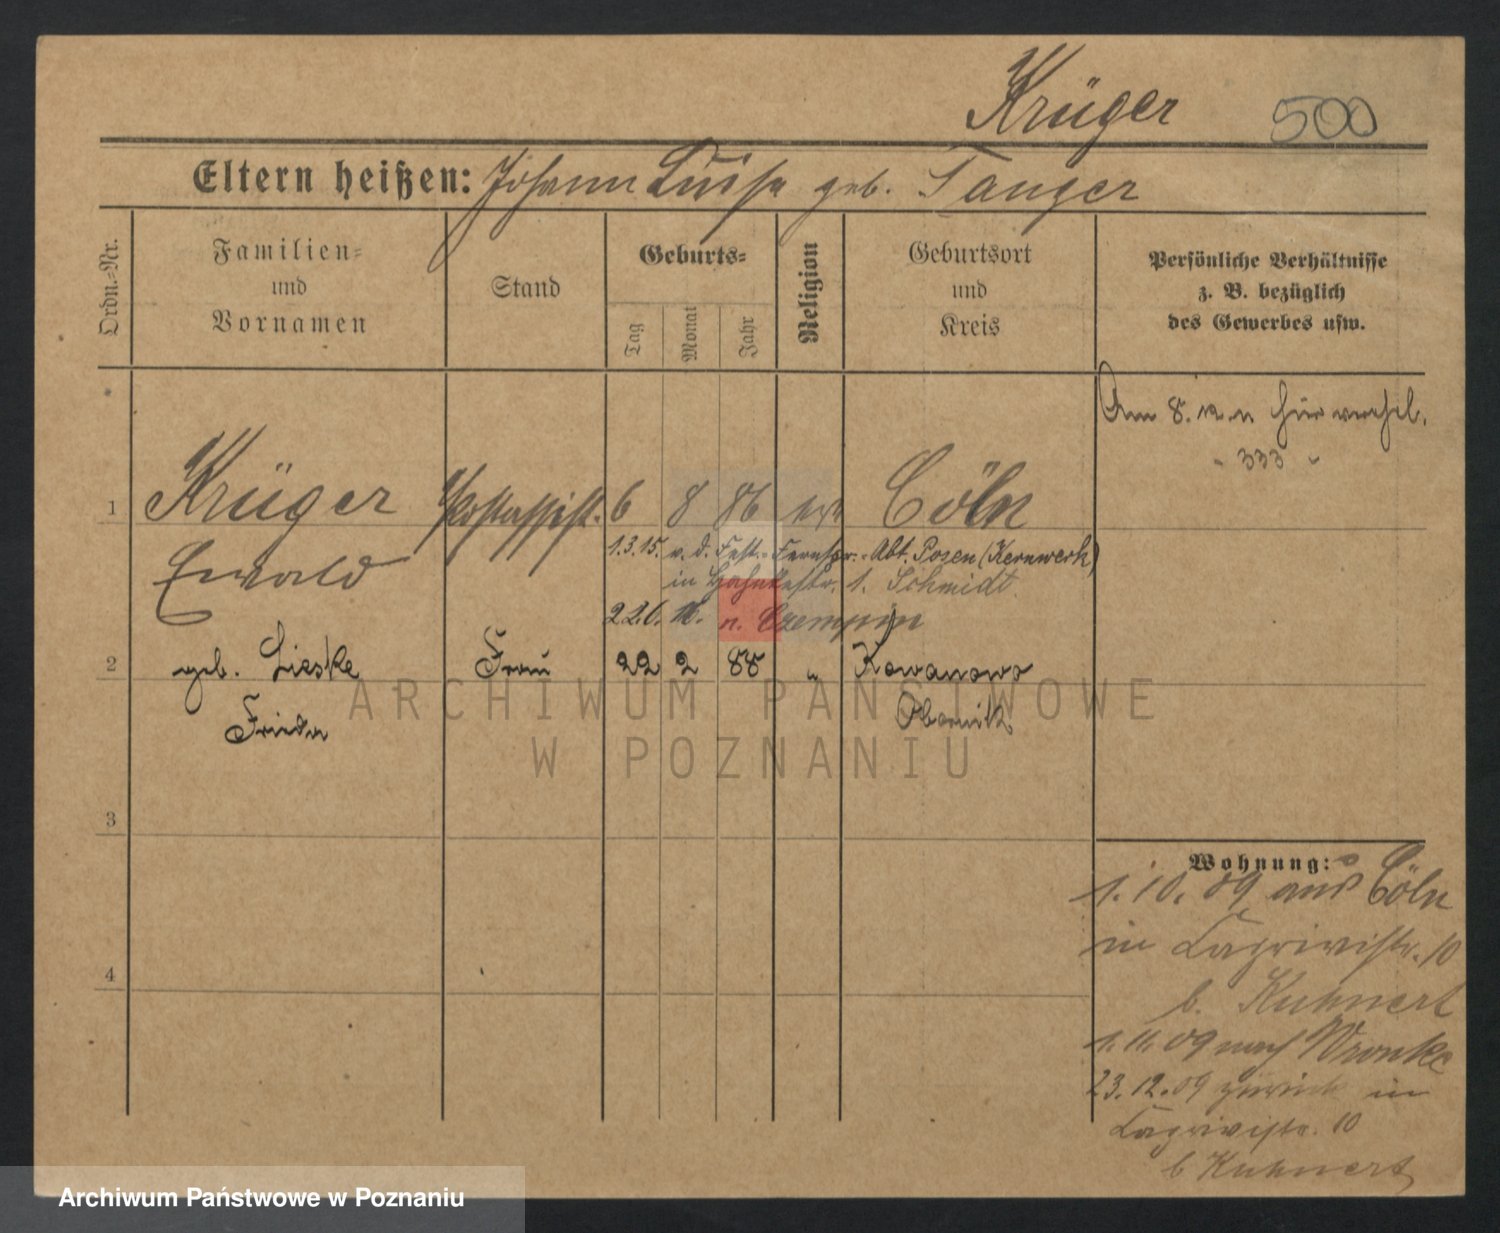 Krüger 500
Eltern heißen: Johann Luise geb. Tanger
Ordn.-Nr.
Familien=
und
Vornamen
Stand
Geburts=
Tag
Monat
Jahr
Religion
Geburtsort
und
Kreis
Persönliche Verhältnisse
z. B. bezüglich
des Gewerbes usw.
Am 8. 12. 11 hier verehel.
- 333 -
1 Krüger Postassist. 6 8 86 ev. Cöln
Ewald
1.3.15. v. d. Fest.-Fernspr.-Abt. Posen (Kernwerk)
in 1. Schmidt.
22.6. 16. n. Czempin
2 geb. Lieske Frau 22 2 88 " Kowanowo
Frieda Obornik
3
4
Wohnung:
1.10.09 aus Cöln
in 10
b. Kuhnert
1.11.09 nach Wronke
23.12.09 zurück in
10
b Kuhnert
ARCHIWUM PAŃSTWOWE
W POZNANIU
Archiwum Państwowe w Poznaniu